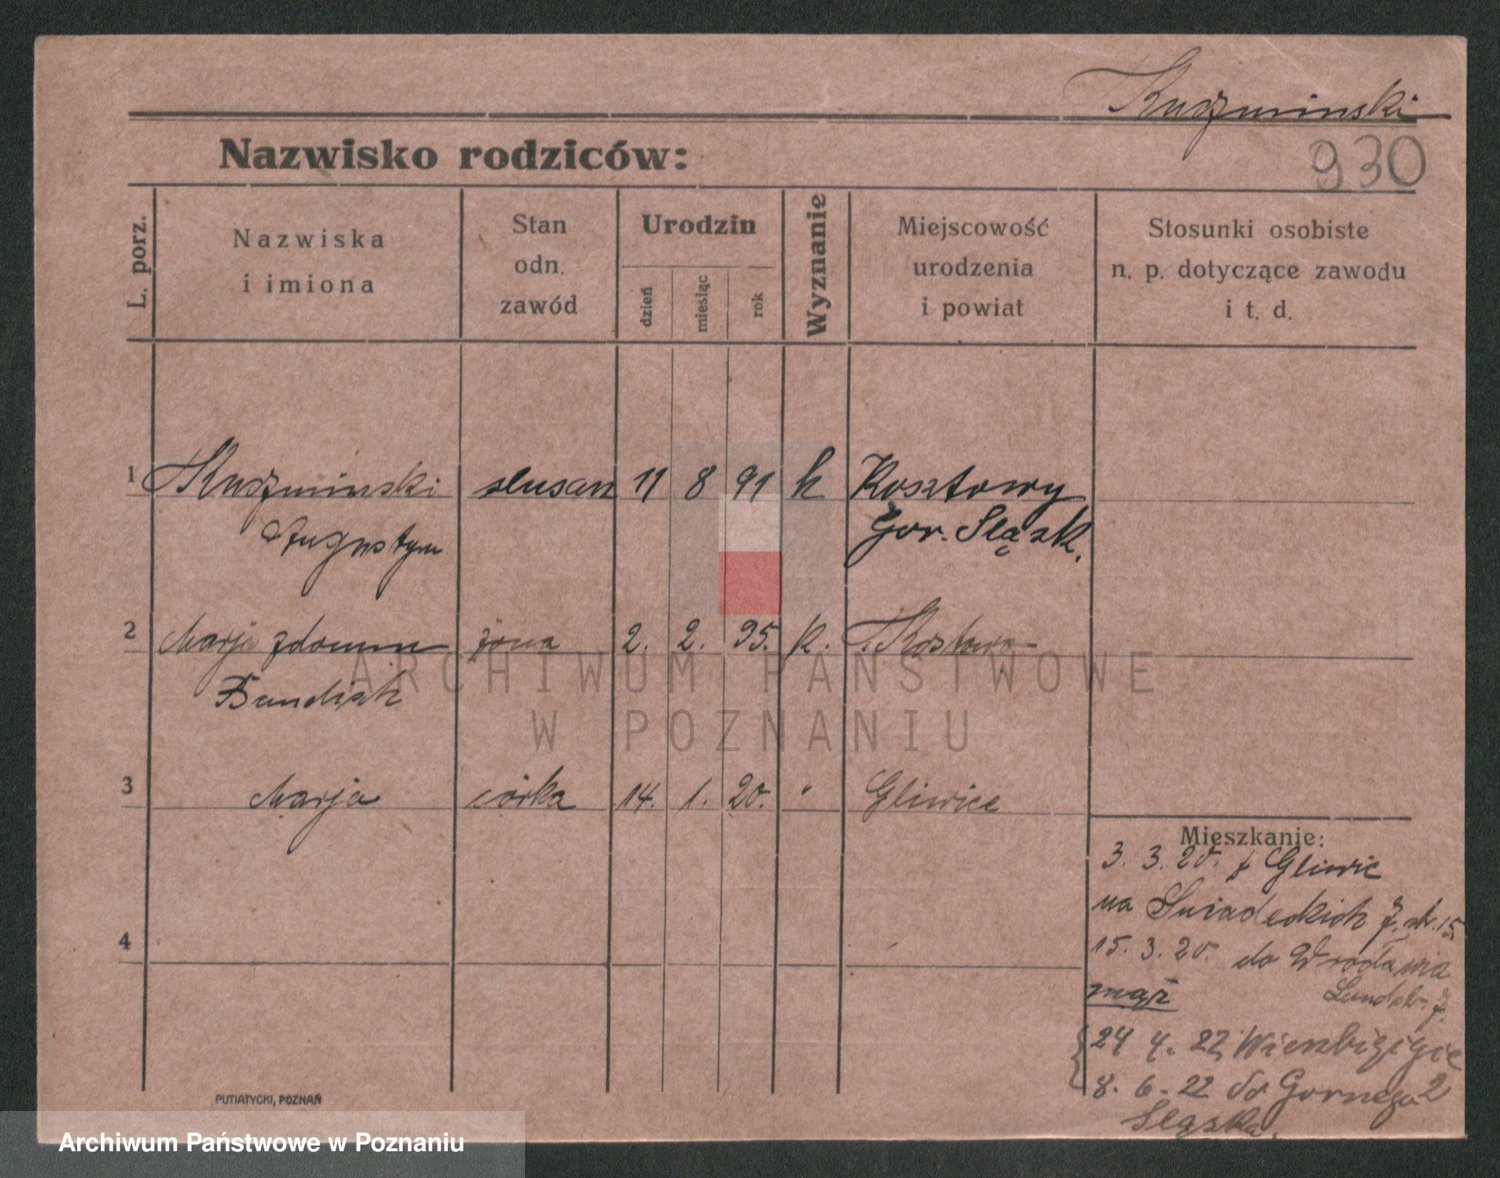 Kudzminski
930
Nazwisko rodziców:
L. porz.
Nazwiska
i imiona
Stan
odn.
zawód
Urodzin
dzień
miesiąc
rok
Wyznanie
Miejscowość
urodzenia
i powiat
Stosunki osobiste
n. p. dotyczące zawodu
i t. d.
1 Kudzminski 11 8 91 k Kosztowy
Augustyn Gor. Sląsk.
2 Marja zdomu żona 2. 2. 95. k.
3 Marja córka 14. 1. 20. " Gliwice
Mieszkanie:
3. 3. 20. z Gliwic
na Sniadeckich
15. 3. 20. do Wrocławia
mąż
4
24 4. 22
8. 6. 22 do Gornego
Sląska.
PUTIATYCKI, POZNAŃ
ARCHIWUM PAŃSTWOWE
W POZNANIU
Archiwum Państwowe w Poznaniu